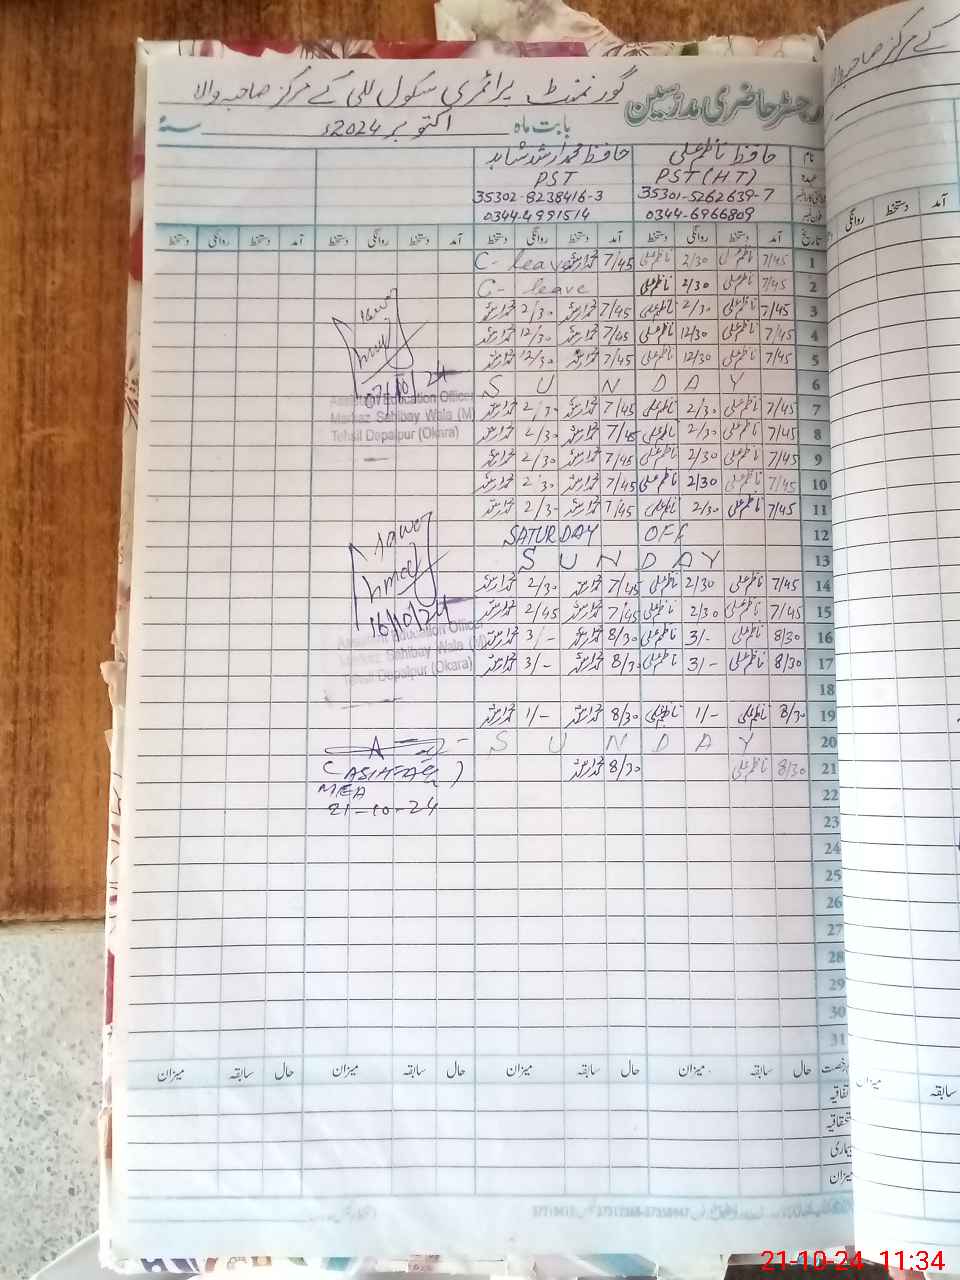 رجسٹر حاضری مدرسین گورنمنٹ پرائمری سکول للی کے مرکز صاحبہ والا
بابت ماہ اکتوبر 2024ء سنہ
نام حافظ ناظم علی حافظ محمد ارشد شاہد
عہدہ PST (HT) PST
35301-5262639-7 35302-8238416-3
0344-6966809 0344-4991514
تاریخ آمد دستخط روانگی دستخط آمد دستخط روانگی دستخط آمد دستخط روانگی دستخط آمد دستخط روانگی دستخط
1 7/45 ناظم علی 2/30 ناظم علی 7/45 محمد ارشد C- leave
2 7/45 ناظم علی 2/30 ناظم علی C- leave
3 7/45 ناظم علی 2/30 ناظم علی 7/45 محمد ارشد 2/30 محمد ارشد
4 7/45 ناظم علی 12/30 ناظم علی 7/45 محمد ارشد 12/30 محمد ارشد
5 7/45 ناظم علی 12/30 ناظم علی 7/45 محمد ارشد 12/30 محمد ارشد
6 SUNDAY
7 7/45 ناظم علی 2/30 ناظم علی 7/45 محمد ارشد 2/30 محمد ارشد
8 7/45 ناظم علی 2/30 ناظم علی 7/45 محمد ارشد 2/30 محمد ارشد
9 7/45 ناظم علی 2/30 ناظم علی 7/45 محمد ارشد 2/30 محمد ارشد
10 7/45 ناظم علی 2/30 ناظم علی 7/45 محمد ارشد 2/30 محمد ارشد
11 7/45 ناظم علی 2/30 ناظم علی 7/45 محمد ارشد 2/3- محمد ارشد
12 SATURDAY OFF
13 SUNDAY
14 7/45 ناظم علی 2/30 ناظم علی 7/45 محمد ارشد 2/30 محمد ارشد
15 7/45 ناظم علی 2/30 ناظم علی 7/45 محمد ارشد 2/45 محمد ارشد
16 8/30 ناظم علی 3/- ناظم علی 8/30 محمد ارشد 3/- محمد ارشد
17 8/30 ناظم علی 3/- ناظم علی 8/30 محمد ارشد 3/- محمد ارشد
18
19 8/30 ناظم علی 1/- ناظم علی 8/30 محمد ارشد 1/- محمد ارشد
20 SUNDAY
21 8/30 ناظم علی 8/30 محمد ارشد
22
23
24
25
26
27
28
29
30
31
07/10/24
Assistant Education Officer
Markaz Sahibay Wala (M)
Tehsil Depalpur (Okara)
16/10/24
Assistant Education Officer
Markaz Sahibay Wala (M)
Tehsil Depalpur (Okara)
(ASHFAQ)
MEA
21-10-24
رخصت حال سابقہ میزان حال سابقہ میزان حال سابقہ میزان حال سابقہ میزان
اتفاقیہ
استحقاقیہ
بیماری
میزان
آمد دستخط روانگی
میزان
سابقہ
21-10-24 11:34